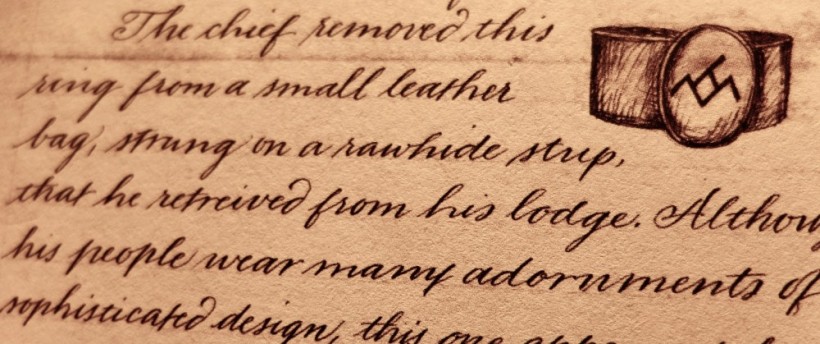 The chief removed this
ring from a small leather
bag, strung on a rawhide strip,
that he retreived from his lodge. Althou
his people wear many adornments of
sophisticated design, this one